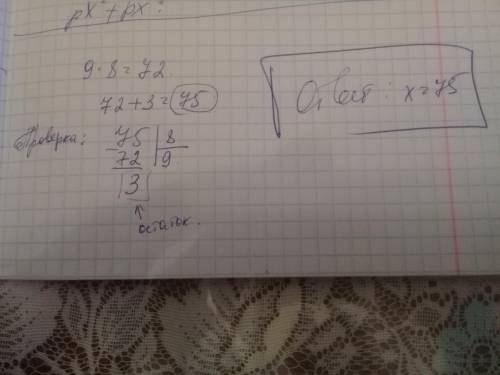 px + px
9·8=72
72+3=75
Проверка:
75 8
72 9
3
остаток.
Ответ: x=75